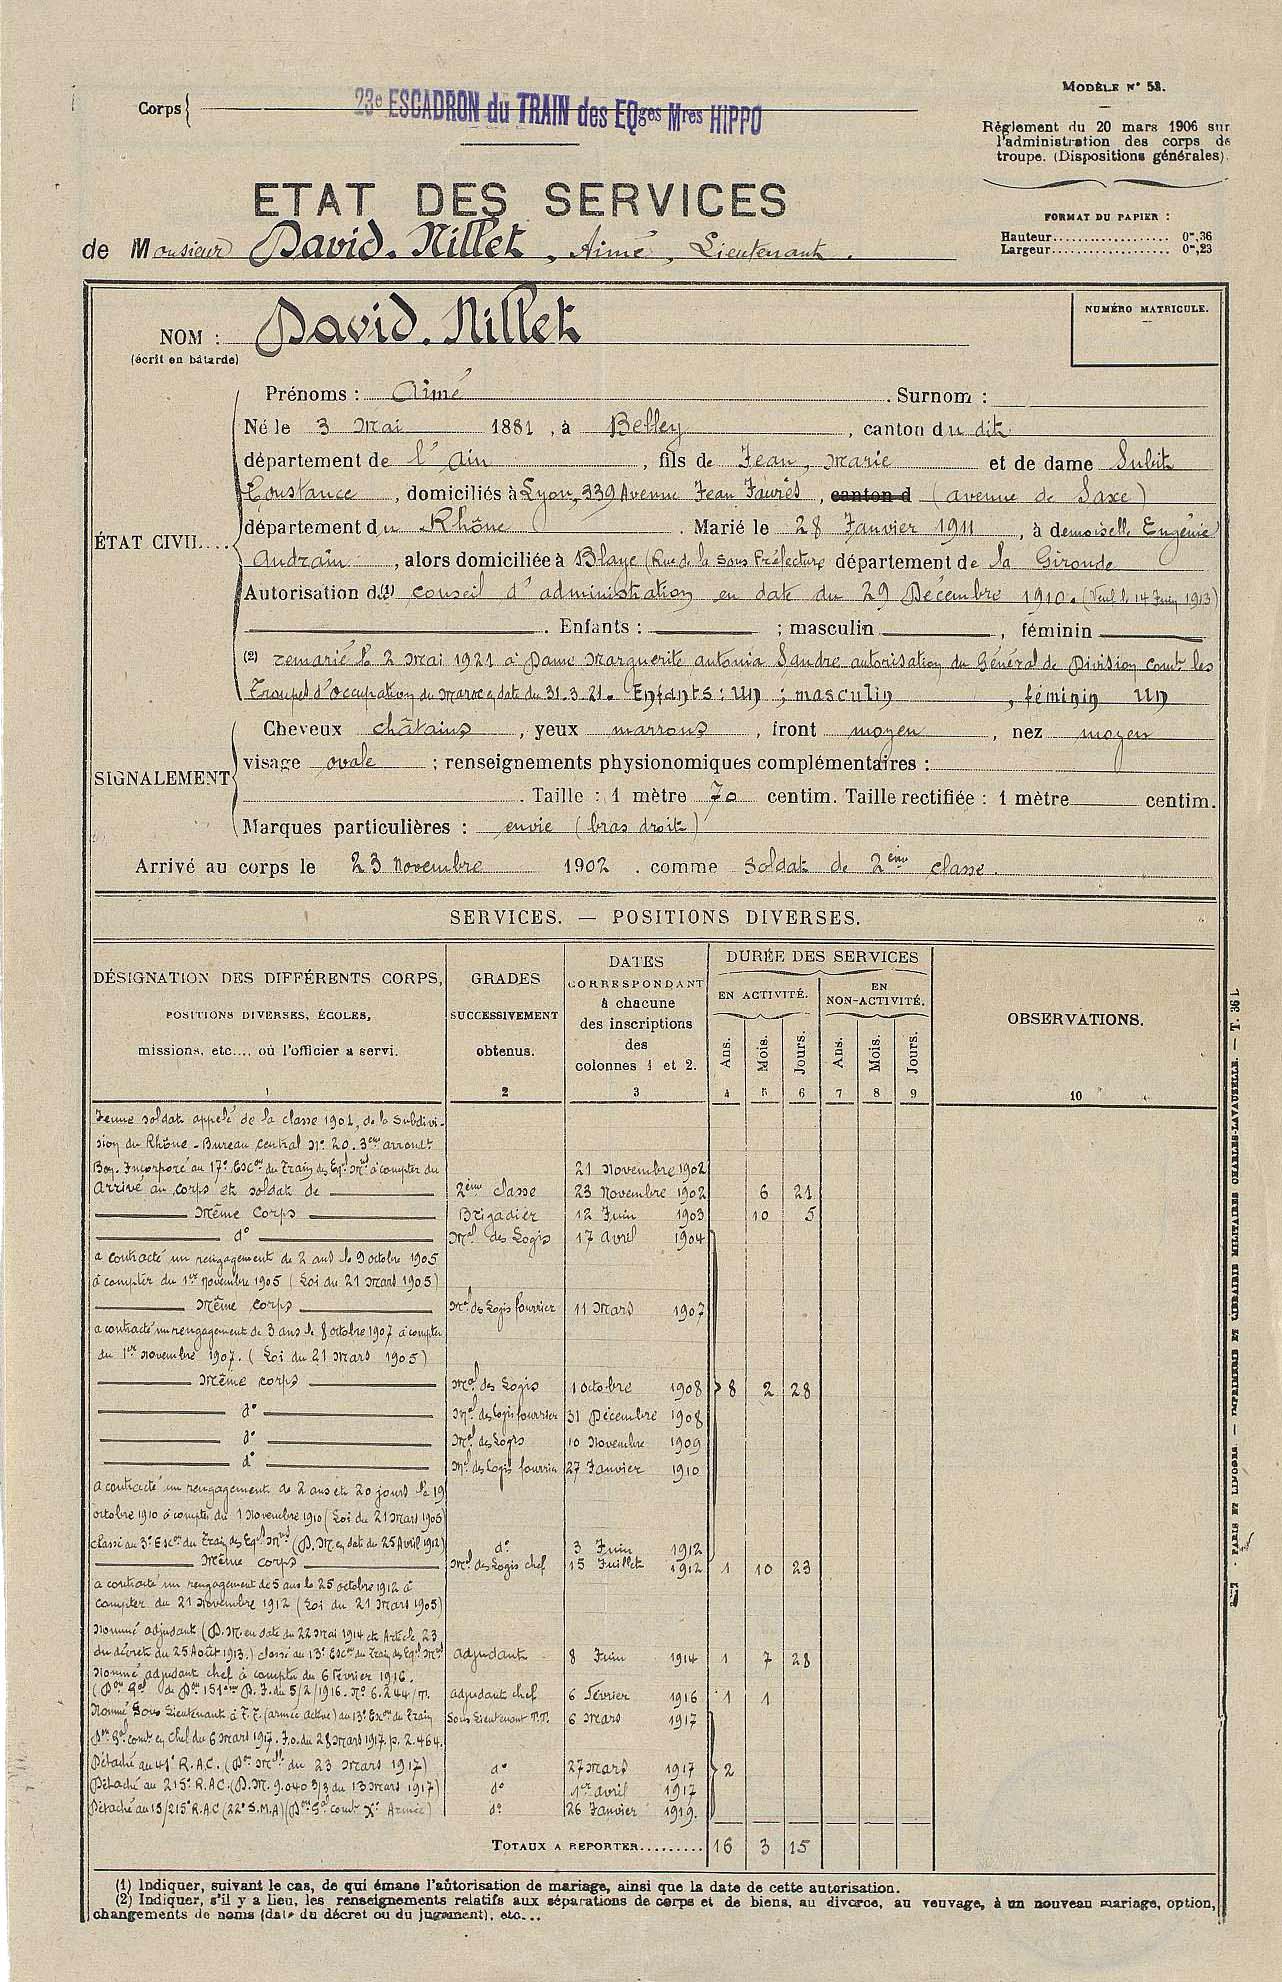 MODÈLE N° 53.
Corps
23e ESCADRON du TRAIN des EQges Mres HIPPO
Règlement du 20 mars 1906 sur
l'administration des corps de
troupe. (Dispositions générales).
ETAT DES SERVICES
FORMAT DU PAPIER :
Hauteur................... 0m,36
Largeur................... 0m,23
de Monsieur David. Nillet, Aimé, Lieutenant.
NUMÉRO MATRICULE.
NOM : David. Nillet
(écrit en bâtarde)
Prénoms : Aimé . Surnom :
Né le 3 Mai 1881, à Belley, canton du dit
département de l'Ain, fils de Jean, Marie et de dame Subit
Constance, domiciliés à Lyon, 339 Avenue Jean Jaurès, canton d (avenue de Saxe)
département du Rhône. Marié le 28 Janvier 1911, à demoiselle Eugénie
ÉTAT CIVIL....
Audrain, alors domiciliée à Blaye (Rue de la Sous Préfecture département de la Gironde
Autorisation d(1) conseil d'administration en date du 29 Décembre 1910. (Veuf le 14 Juin 1913)
. Enfants : ; masculin , féminin
(2) remarié le 2 Mai 1921 à Dame Marguerite Antonia Sandre autorisation du Général de Division comt les
Troupes d'occupation du Maroc en date du 31.3.21. Enfants : un ; masculin , féminin un
Cheveux châtains, yeux marrons, front moyen, nez moyen
visage ovale ; renseignements physionomiques complémentaires :
SIGNALEMENT
. Taille : 1 mètre 70 centim. Taille rectifiée : 1 mètre centim.
Marques particulières : envie (bras droit)
Arrivé au corps le 23 Novembre 1902. comme soldat de 2ème classe.
SERVICES. — POSITIONS DIVERSES.
DÉSIGNATION DES DIFFÉRENTS CORPS,
POSITIONS DIVERSES, ÉCOLES,
missions, etc..., où l'officier a servi.
1
GRADES
SUCCESSIVEMENT
obtenus.
2
DATES
CORRESPONDANT
à chacune
des inscriptions
des
colonnes 1 et 2.
3
DURÉE DES SERVICES
EN ACTIVITÉ.
EN
NON-ACTIVITÉ.
Ans. Mois. Jours. Ans. Mois. Jours.
4 5 6 7 8 9
OBSERVATIONS.
10
Jeune soldat appelé de la classe 1901, de la Subdivi-
sion du Rhône - Bureau central N° 20. 3ème arrondt
Incorporé au 17e Escon du Train des Eql Mres à compter du 21 Novembre 1902
Arrivé au corps et soldat de 2ème classe 23 Novembre 1902 6 21
Même corps Brigadier 12 Juin 1903 10 5
d° Mal des Logis 17 Avril 1904
a contracté un rengagement de 2 ans le 9 octobre 1905
à compter du 1er Novembre 1905 (Loi du 21 Mars 1905)
Même corps Mal des Logis fourrier 11 Mars 1907
a contracté un rengagement de 3 ans le 8 octobre 1907 à compter
du 1er Novembre 1907. (Loi du 21 Mars 1905)
Même corps Mal des Logis 1 octobre 1908 8 2 28
d° Mal des Logis fourrier 31 Décembre 1908
d° Mal des Logis 10 Novembre 1909
d° Mal des Logis fourrier 27 Janvier 1910
a contracté un rengagement de 2 ans et 20 jours le 19
octobre 1910 à compter du 1 Novembre 1910 (Loi du 21 Mars 1905)
Classé au 3e Escon du Train des Eql Mres (D.M. en date du 25 Avril 1912) d° 3 Juin 1912
Même corps Mal des Logis chef 15 Juillet 1912 1 10 23
a contracté un rengagement de 5 ans le 25 octobre 1912 à
compter du 21 Novembre 1912 (Loi du 21 Mars 1905)
Nommé adjudant (D.M. en date du 22 Mai 1914 et Article 23
du décret du 25 Août 1913.) classé au 13e Escon du Train des Eql Mres adjudant 8 Juin 1914 1 7 28
Nommé adjudant chef à compter du 6 Février 1916.
(Don Gal de Don 151ème D.I. du 5/2/1916. N° 6.244/M. adjudant chef 6 Février 1916 1 1
Nommé Sous Lieutenant à T.T. (armée active) au 13e Escon du Train Sous Lieutenant T.T. 6 Mars 1917
Don Gal comt en chef du 6 Mars 1917. J.O. du 28 Mars 1917. p. 2.464.
Détaché au 41e R.A.C. (Don Mlle du 23 Mars 1917) d° 27 Mars 1917 2
Détaché au 215e R.A.C. (D.M. 9.040 3/3 du 13 Mars 1917) d° 1er avril 1917
Détaché au 15/215e R.A.C (22e S.M.A) (Don Gal comt Xe Armée) d° 26 Janvier 1919.
TOTAUX A REPORTER......... 16 3 15
(1) Indiquer, suivant le cas, de qui émane l'autorisation de mariage, ainsi que la date de cette autorisation.
(2) Indiquer, s'il y a lieu, les renseignements relatifs aux séparations de corps et de biens, au divorce, au veuvage, à un nouveau mariage, option,
changements de noms (date du décret ou du jugement), etc...
PARIS ET LIMOGES. — IMPRIMERIE ET LIBRAIRIE MILITAIRES CHARLES-LAVAUZELLE. — T. 36 L